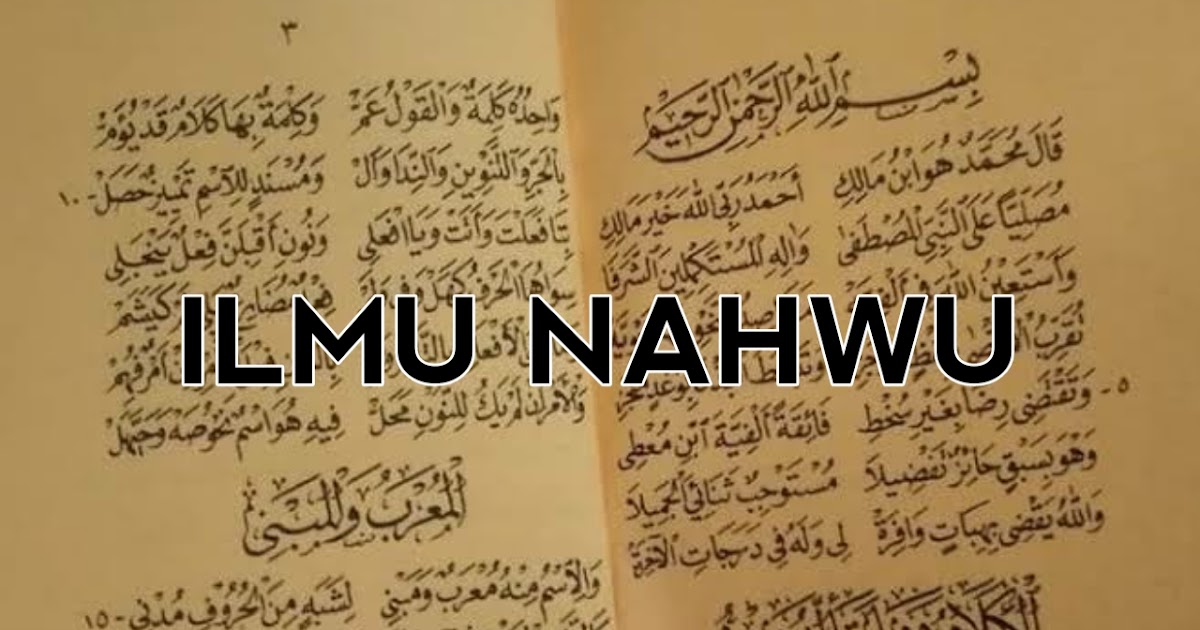 بِسْمِ اللهِ الرَّحْمٰنِ الرَّحِيْمِ
قَالَ مُحَمَّدٌ هُوَ ابْنُ مَالِكِ أَحْمَدُ رَبِّي اللهَ خَيْرَ مَالِكِ
مُصَلِّيًا عَلَى النَّبِيِّ الْمُصْطَفَى وَآلِهِ الْمُسْتَكْمِلِينَ الشَّرَفَا
وَأَسْتَعِينُ اللهَ فِي
تُقَرِّبُ
٥ - وَتَقْتَضِي رِضًا بِغَيْرِ سُخْطِ فَائِقَةً أَلْفِيَّةَ ابْنِ مُعْطِي
وَهْوَ بِسَبْقٍ حَائِزٌ تَفْضِيلَا مُسْتَوْجِبٌ ثَنَائِيَ الْجَمِيلَا
وَاللهُ يَقْضِي بِهِبَاتٍ وَافِرَهْ لِي وَلَهُ فِي دَرَجَاتِ الْآخِرَهْ
٣
وَاحِدُهُ كَلِمَةٌ وَالْقَوْلُ عَمْ وَكِلْمَةٌ بِهَا كَلَامٌ قَدْ يُؤَمْ
بِالْجَرِّ وَالتَّنْوِينِ وَالنِّدَا وَأَلْ وَمُسْنَدٍ لِلِاسْمِ تَمْيِيزٌ حَصَلْ - ١٠
بِتَا فَعَلْتَ وَأَتَتْ وَيَا افْعَلِي وَنُونِ أَقْبِلَنَّ فِعْلٌ يَنْجَلِي
سِوَاهُمَا الْحَرْفُ كَهَلْ وَفِي وَلَمْ كَيَشَمْ
ILMU NAHWU
وَالْأَمْرُ إِنْ لَمْ يَكُ لِلنُّونِ مَحَلْ فِيهِ هُوَ اسْمٌ نَحْوُ صَهْ وَحَيَّهَلْ
الْمُعْرَبُ وَالْمَبْنِي
وَالِاسْمُ مِنْهُ مُعْرَبٌ وَمَبْنِي لِشَبَهٍ مِنَ الْحُرُوفِ مُدْنِي - ١٥